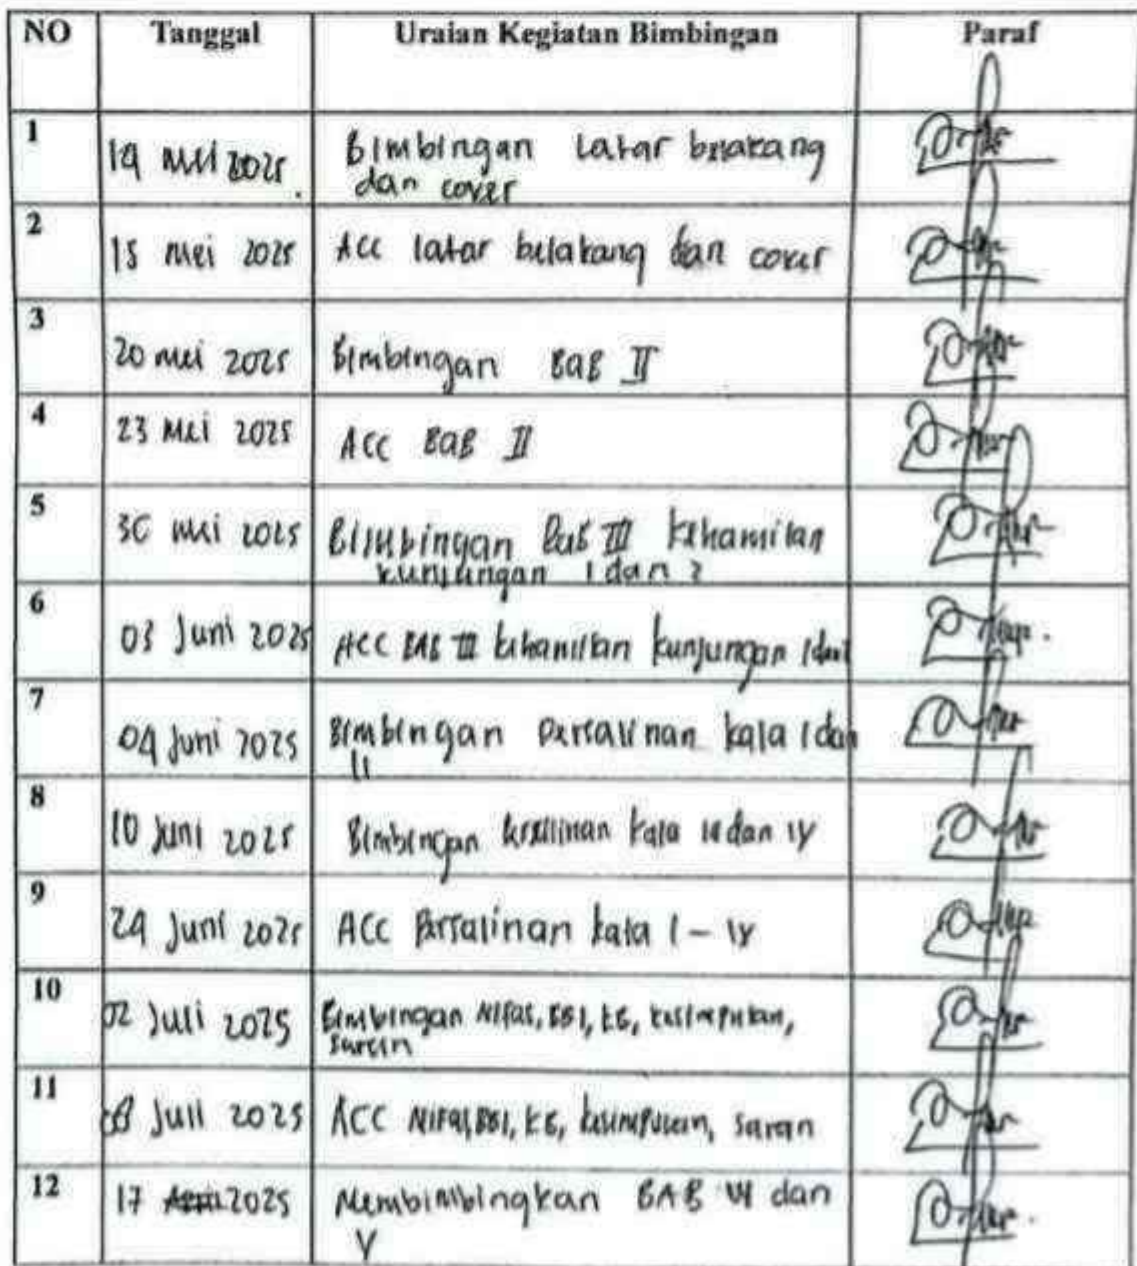 NO Tanggal Uraian Kegiatan Bimbingan Paraf
1 14 Mei 2025. Bimbingan Latar belakang
dan cover
2 15 Mei 2025 ACC latar belakang dan cover
3 20 Mei 2025 Bimbingan BAB II
4 23 Mei 2025 ACC BAB II
5 30 Mei 2025 Bimbingan Bab III kehamilan
kunjungan 1 dan 2
6 03 Juni 2025 ACC BAB III kehamilan kunjungan 1 dan
7 04 Juni 2025 Bimbingan Persalinan kala I dan
II
8 10 Juni 2025 Bimbingan Persalinan kala III dan IV
9 24 Juni 2025 ACC Persalinan kala I - IV
10 02 Juli 2025 Bimbingan Nifas, BBl, KB, kesimpulan,
saran
11 08 Juli 2025 ACC Nifas, BBl, KB, kesimpulan, saran
12 17 2025 Membimbingkan BAB IV dan
V